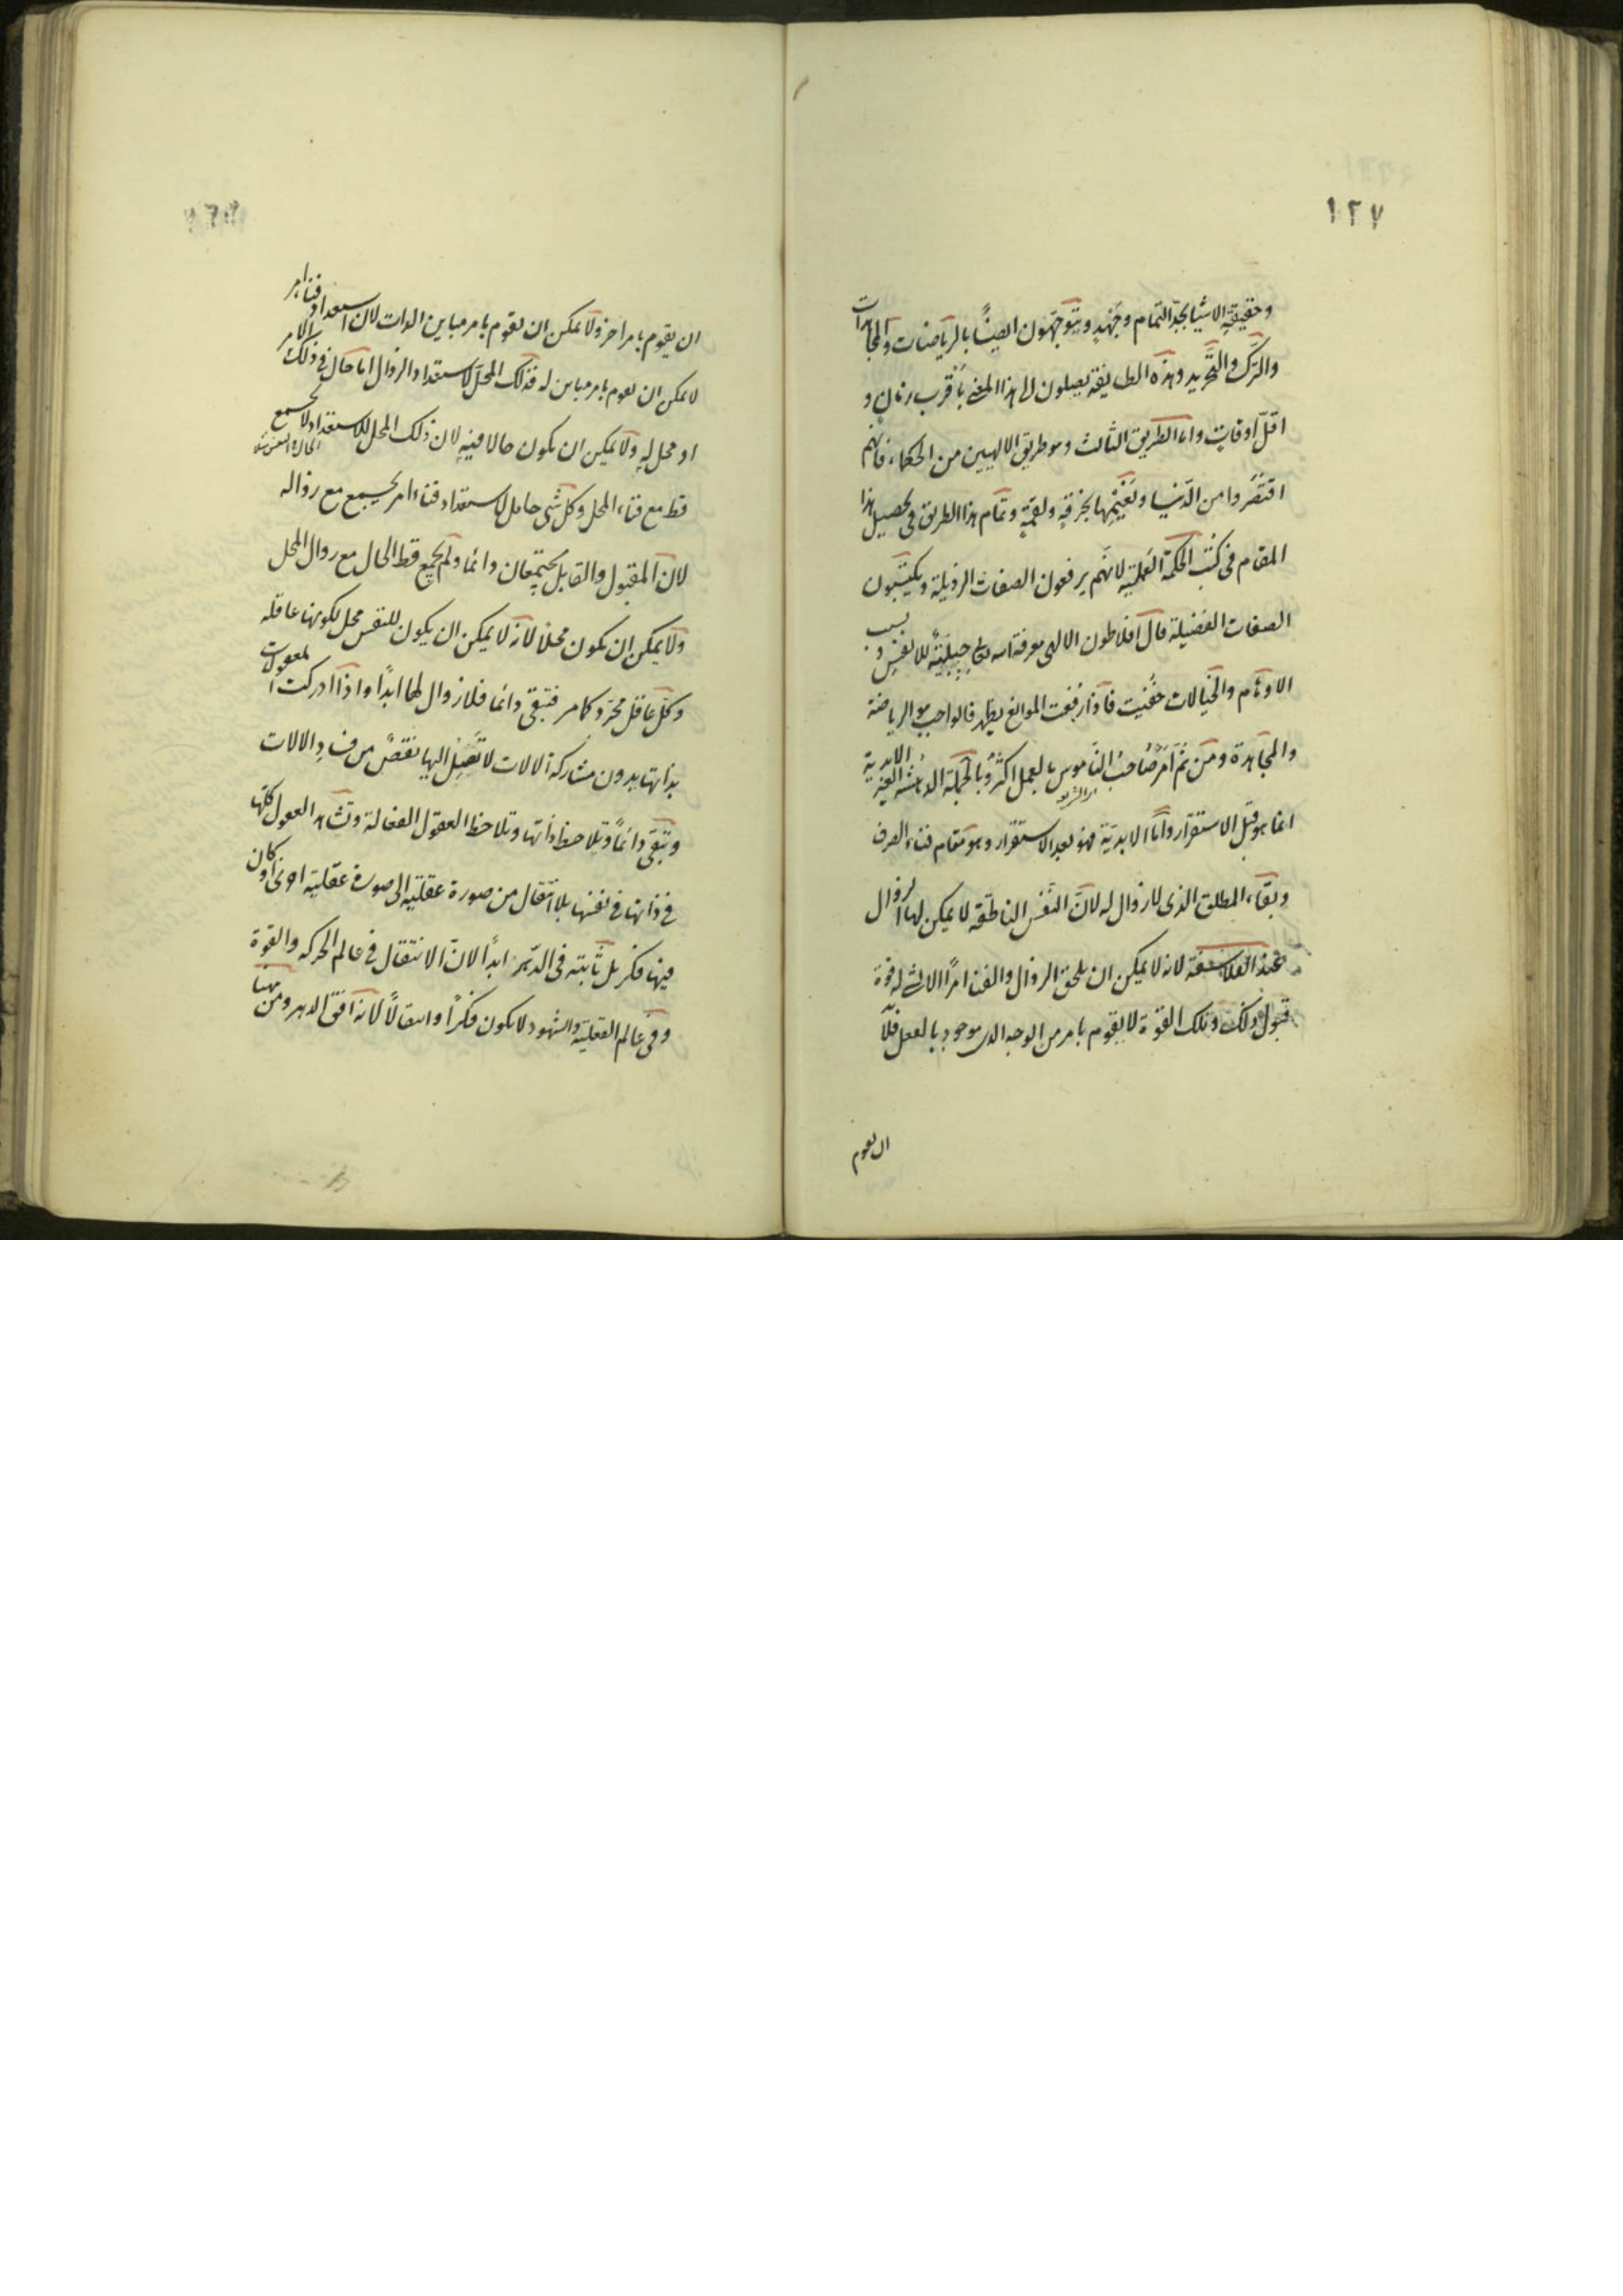 ١٢٧
وحقيقة الاشيا بجد التمام وجهد ويتوجهون ايضاً بالرياضات والمجاهدات
والترك والتجريد وهذه الطايفة يصلون الى هذا المعنى باقرب زمان و
اقل اوقات واما الطريق الثالث وهو طريق الالهيين من الحكماء فانهم
اقتصروا من الدنيا ونعيمها بخرقة ولقمة وتمام هذا الطريق فى تحصيل هذا
المقام فى كتب الحكمة العملية لانهم يرفعون الصفات الرذيلة ويكتسبون
الصفات الفضيلة قال افلاطون الالهى معرفة الله جبلية للانفس وبسبب
الاوهام والخيالات خفيت فاذا رفعت الموانع يظهر فالواجب هو الرياضة
والمجاهدة ومن ثم امر صاحب الناموس بالعمل اكثر وبالجملة الدهشة الغير الابدية
انما هو قبل الاستقرار واما الابدية فهو بعد الاستقرار وهو مقام فناء الصرف
وبقاء المطلق الذى لا زوال له لان النفس الناطقة لا يمكن لها الزوال
عند الفلاسفة لانه لا يمكن ان يلحق الزوال والفنا امراً الا له قوة
قبول ذلك وتلك القوة لا يقوم بامر من الوجه الذى موجود بالفعل فلا
ان يقوم
ان يقوم بامر اخر ولا يمكن ان يقوم بامر مباين الذات لان استعداد فناء امر
لا يمكن ان يقوم بامر مباين له فذلك المحل لاستعداد الزوال اما حال فى ذلك الامر
او محل له ولا يمكن ان يكون حالا فيه لان ذلك المحل للاستعداد لا يجتمع
قط مع فناء المحل وكل شى حامل لاستعداد فناء امر يجتمع مع زواله
لان المقبول والقابل يجتمعان دائما ولم يجمع قط الحال مع زوال المحل
ولا يمكن ان يكون محلا لانه لا يمكن ان يكون للنفس محل لكونها عاقلة
وكل عاقل مجرد كما مر فتبقى دائما فلا زوال لها ابداً واذا ادركت المعقولات
بذاتها بدون مشاركة الالات لا تصل اليها نقص من فساد الالات
وتبقى دائماً وتلاحظ ذاتها وتلاحظ العقول الفعالة وتشاهد العقول كلها
فى ذاتها فى نفسها بلا انتقال من صورة عقلية الى صورة عقلية اخرى او كان
فيها فكر بل ثابتة فى الدهر ابداً لان الانتقال فى عالم الحركة والقوة
وفى عالم العقلية والشهود لا يكون فكراً وانتقالاً لانه افق الدهر ومن هنا